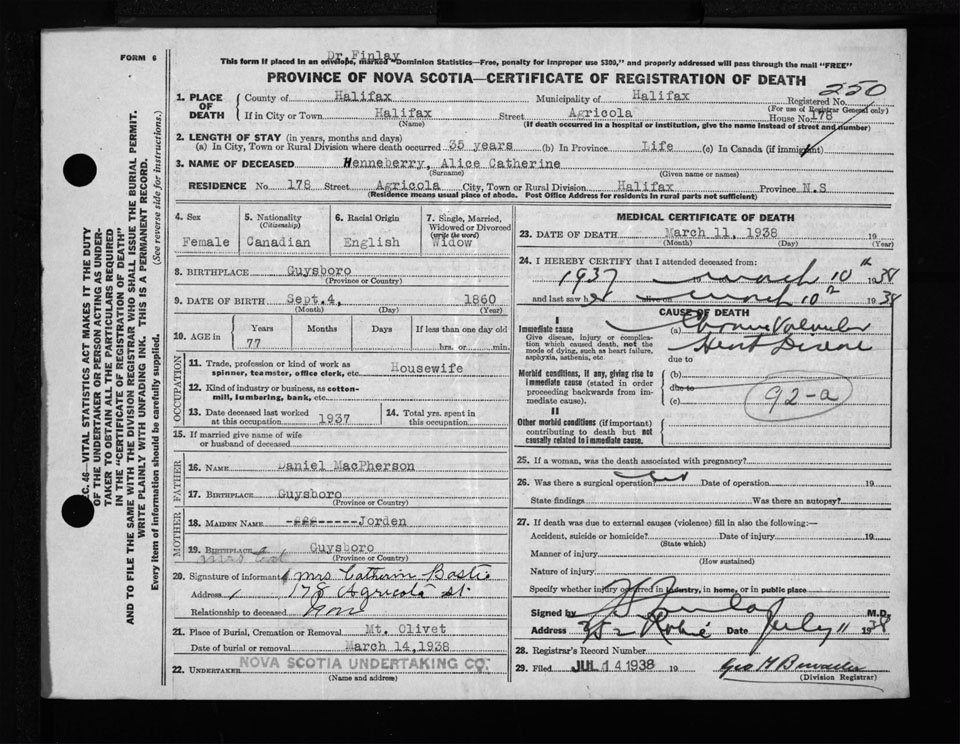 FORM 6
Dr. Finlay
This form if placed in an envelope, marked "Dominion Statistics—Free, penalty for improper use $300," and properly addressed will pass through the mail "FREE"
PROVINCE OF NOVA SCOTIA—CERTIFICATE OF REGISTRATION OF DEATH
250
1. PLACE OF DEATH { County of Halifax Municipality of Halifax Registered No.
(For use of Registrar General only)
If in City or Town Halifax Street Agricola House No. 178
(Name) (If death occurred in a hospital or institution, give the name instead of street and number)
2. LENGTH OF STAY (in years, months and days)
(a) In City, Town or Rural Division where death occurred 35 years (b) In Province Life (c) In Canada (if immigrant)
3. NAME OF DECEASED Henneberry, Alice Catherine
(Surname) (Given name or names)
RESIDENCE No. 178 Street Agricola City, Town or Rural Division Halifax Province N.S
(Residence means usual place of abode. Post Office Address for residents in rural parts not sufficient)
4. Sex Female
5. Nationality (Citizenship) Canadian
6. Racial Origin English
7. Single, Married, Widowed or Divorced (write the word) Widow
8. BIRTHPLACE Guysboro
(Province or Country)
9. DATE OF BIRTH Sept. 4, 1860
(Month) (Day) (Year)
10. AGE in Years Months Days If less than one day old
77 hrs. or min.
OCCUPATION
11. Trade, profession or kind of work as spinner, teamster, office clerk, etc. Housewife
12. Kind of industry or business, as cotton-mill, lumbering, bank, etc.
13. Date deceased last worked at this occupation 1937
14. Total yrs. spent in this occupation
15. If married give name of wife or husband of deceased
FATHER
16. NAME Daniel MacPherson
17. BIRTHPLACE Guysboro
(Province or Country)
MOTHER
18. MAIDEN NAME Jorden
19. BIRTHPLACE Guysboro
(Province or Country)
20. Signature of informant Mrs Catherin
Address 178 Agricola st
Relationship to deceased None
21. Place of Burial, Cremation or Removal Mt. Olivet
Date of burial or removal March 14, 1938
22. UNDERTAKER NOVA SCOTIA UNDERTAKING CO.
(Name and address)
MEDICAL CERTIFICATE OF DEATH
23. DATE OF DEATH March 11, 1938 19
(Month) (Day) (Year)
24. I HEREBY CERTIFY that I attended deceased from:
1937 to March 10th 1938
and last saw her alive on March 10th 1938
CAUSE OF DEATH
I
Immediate cause (a) Chronic Valvular
Give disease, injury or complication which caused death, not the mode of dying, such as heart failure, asphyxia, asthenia, etc.
Heart Disease
due to
Morbid conditions, if any, giving rise to immediate cause (stated in order proceeding backwards from immediate cause).
(b)
due to
(c)
92-a
II
Other morbid conditions (if important) contributing to death but not causally related to immediate cause.
25. If a woman, was the death associated with pregnancy?
26. Was there a surgical operation? Date of operation 19
State findings Was there an autopsy?
27. If death was due to external causes (violence) fill in also the following:—
Accident, suicide or homicide? Date of injury 19
(State which)
Manner of injury
(How sustained)
Nature of injury
Specify whether injury occurred in industry, in home, or in public place
Signed by Finlay M.D.
Address Robie Date July 11 1938
28. Registrar's Record Number
29. Filed JUL 14 1938 19
(Division Registrar)
C. 46—VITAL STATISTICS ACT MAKES IT THE DUTY
OF THE UNDERTAKER OR PERSON ACTING AS UNDER-
TAKER TO OBTAIN ALL THE PARTICULARS REQUIRED
IN THE "CERTIFICATE OF REGISTRATION OF DEATH"
AND TO FILE THE SAME WITH THE DIVISION REGISTRAR WHO SHALL ISSUE THE BURIAL PERMIT.
WRITE PLAINLY WITH UNFADING INK. THIS IS A PERMANENT RECORD.
Every item of information should be carefully supplied. (See reverse side for instructions.)